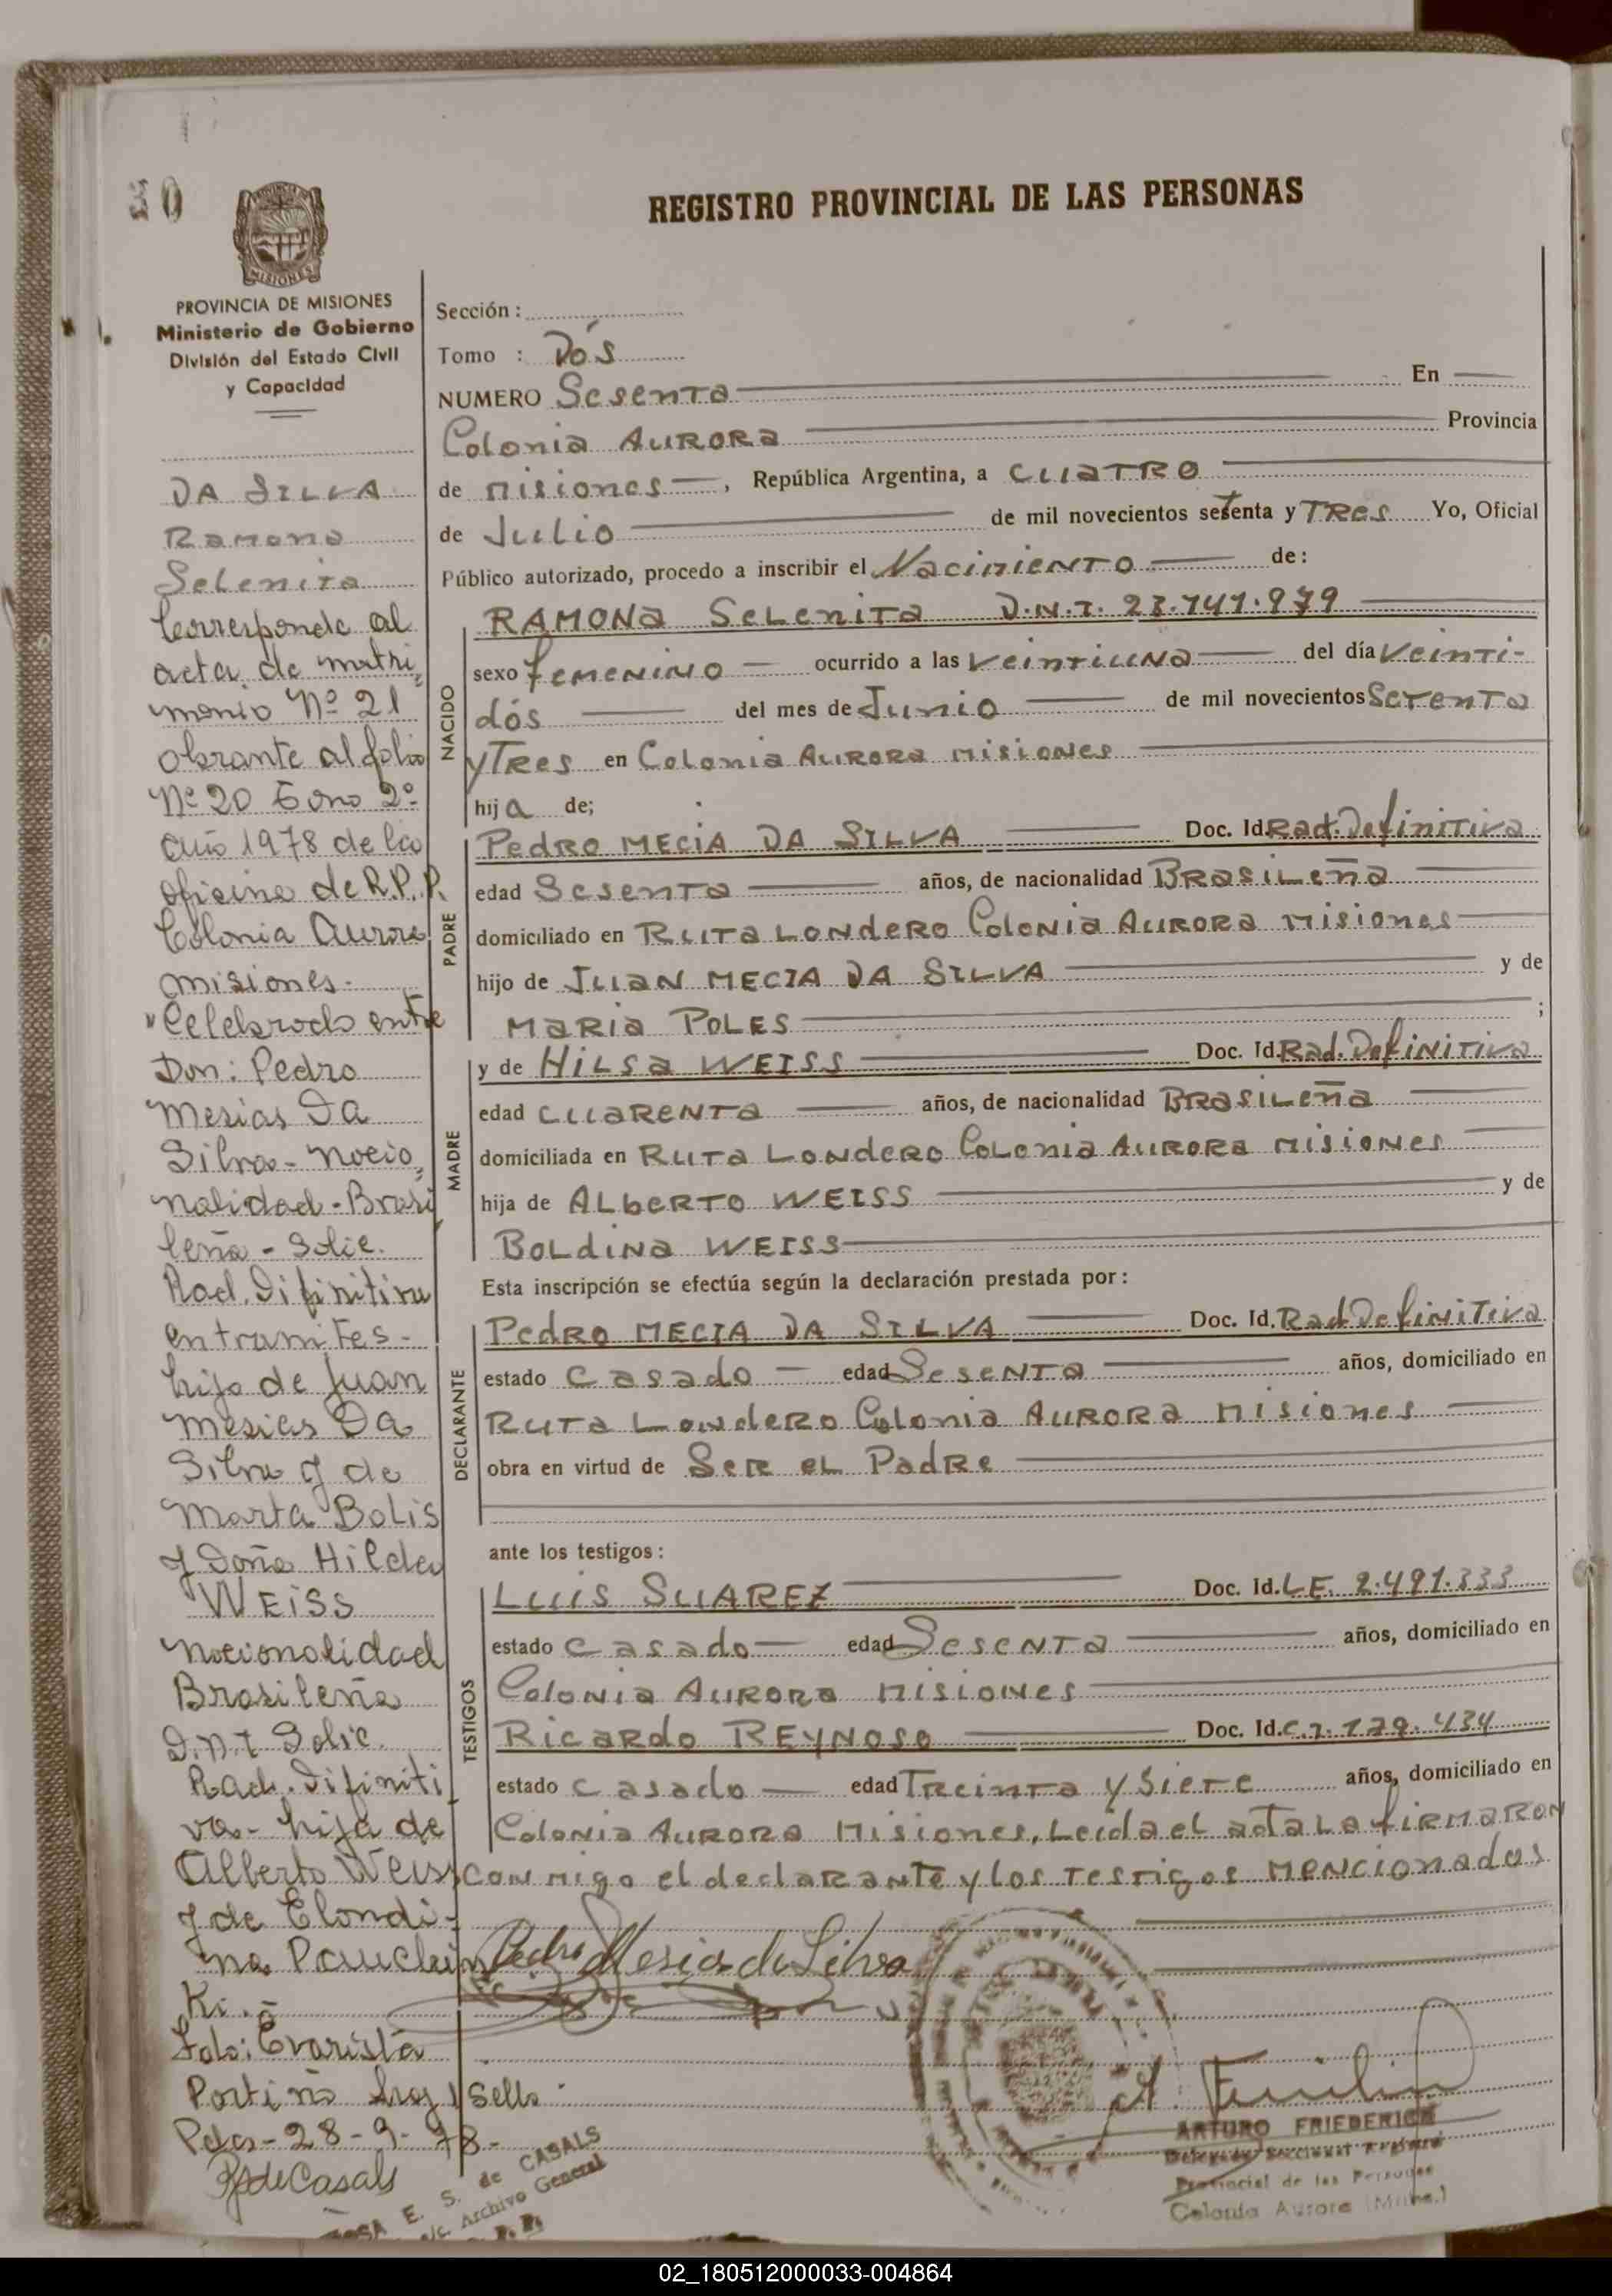 30
REGISTRO PROVINCIAL DE LAS PERSONAS
MISIONES
PROVINCIA DE MISIONES
Ministerio de Gobierno
División del Estado Civil
y Capacidad
DA SILVA
Ramona
Selenita
Corresponde al
acta de matri
monio Nº 21
obrante al folio
Nº 20 Tomo 2º
Año 1978 de la
oficina de R.P.P.
Colonia Aurora
misiones.
Celebrado entre
Don: Pedro
Mesias Da
Silva - nacio
nalidad - Brasi
leña - Solic.
Rad. Difinitiva
en tramites -
hijo de Juan
Mesias Da
Silva y de
Marta Bolis
y Doña Hilda
WEISS
nacionalidad
Brasileña
D.N.I Solic.
Rad. Difiniti
va - hija de
Alberto Weiss
y de Elondi-
na
Ki.-
Fdo: Evarista
Portiño hay 1 Sello
Pdas - 28-9-78-
RdeCasals
Sección :
Tomo : Dós
NUMERO Sesenta En
Colonia Aurora Provincia
de Misiones , República Argentina, a Cuatro
de Julio de mil novecientos setenta y Tres Yo, Oficial
Público autorizado, procedo a inscribir el Nacimiento de:
NACIDO
Ramona Selenita D.N.I. 23.747.979
sexo femenino ocurrido a las veintiuna del día veinti-
dós del mes de Junio de mil novecientos Setenta
y Tres en Colonia Aurora Misiones
hija de;
PADRE
Pedro Mecia Da Silva Doc. Id. Rad. Definitiva
edad Sesenta años, de nacionalidad Brasileña
domiciliado en Ruta Londero Colonia Aurora Misiones
hijo de Juan Mecia Da Silva y de
Maria Poles ;
MADRE
y de Hilsa Weiss Doc. Id. Rad. Definitiva
edad Cuarenta años, de nacionalidad Brasileña
domiciliada en Ruta Londero Colonia Aurora Misiones
hija de Alberto Weiss y de
Boldina Weiss
Esta inscripción se efectúa según la declaración prestada por:
DECLARANTE
Pedro Mecia Da Silva Doc. Id. Rad Definitiva
estado Casado edad Sesenta años, domiciliado en
Ruta Londero Colonia Aurora Misiones
obra en virtud de Ser el Padre
ante los testigos:
TESTIGOS
Luis Suarez Doc. Id. L.E. 2.491.333
estado Casado edad Sesenta años, domiciliado en
Colonia Aurora Misiones
Ricardo Reynoso Doc. Id. C.I. 179.434
estado Casado edad Treinta y Siete años, domiciliado en
Colonia Aurora Misiones, Leida el acta La firmaron
conmigo el declarante y los testigos mencionados
Pedro Mesias da Silva
ARTURO FRIEDERICH
Delegado Seccional Registro
Provincial de las Personas
Colonia Aurora (Mnes.)
ROSA E. S. de CASALS
a/c. Archivo General
R. P. P.
02_180512000033-004864